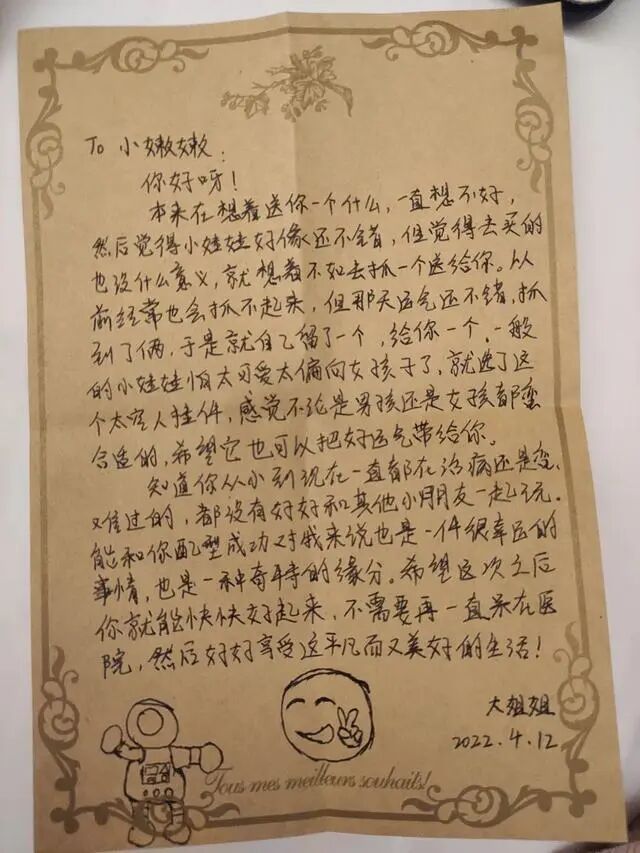 To 小嫩嫩:
你好呀！
本来在想着送你一个什么，一直想不好，
然后觉得小娃娃好像还不错，但觉得去买的
也没什么意义，就想着不如去抓一个送给你。以
前经常也会抓不起来，但那天运气还不错，抓
到了俩，于是就自己留了一个，给你一个。一般
的小娃娃怕太可爱太偏向女孩子了，就选了这
个太空人挂件，感觉不论是男孩还是女孩都蛮
合适的，希望它也可以把好运气带给你。
知道你从小到现在一直都在治病还是蛮
难过的，都没有好好和其他小朋友一起玩。
能和你配型成功对我来说也是一件很幸运的
事情，也是一种奇特的缘分。希望这次之后
你就能快快好起来，不需要再一直呆在医
院，然后好好享受这平凡而又美好的生活！
大姐姐
2022.4.12
Tous mes meilleurs souhaits!